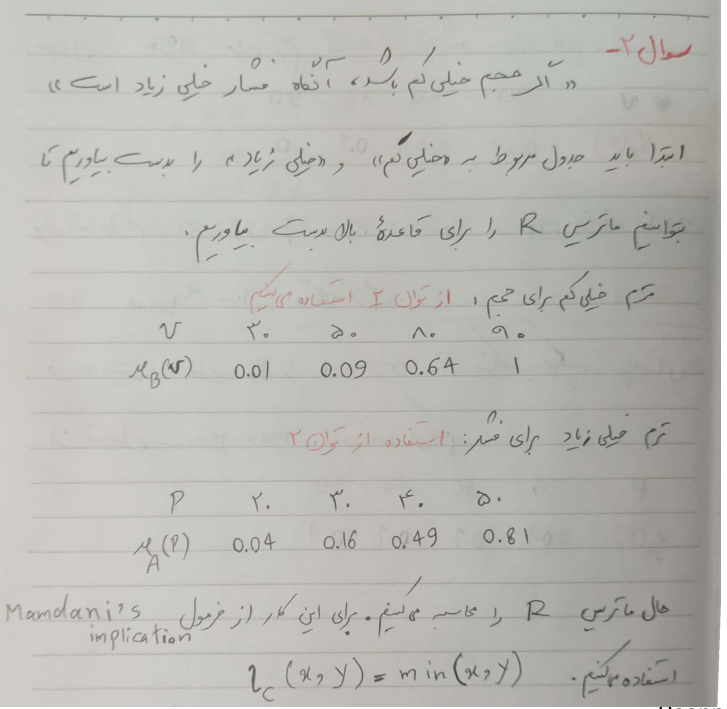 سوال ۲-
« اگر حجم خیلی کم باشد، آنگاه فشار خیلی زیاد است »
ابتدا باید جدول مربوط به «خیلی کم» و «خیلی زیاد» را بدست بیاوریم تا
بتوانیم ماتریس R را برای قاعدهٔ بالا بدست بیاوریم.
ترم خیلی کم برای حجم: از توان ۲ استفاده می‌کنیم
v ۳۰ ۵۰ ۸۰ ۹۰
μB(v) 0.01 0.09 0.64 1
ترم خیلی زیاد برای فشار: استفاده از توان ۲
P ۲۰ ۳۰ ۴۰ ۵۰
μA(P) 0.04 0.16 0.49 0.81
حال ماتریس R را محاسبه می‌کنیم. برای این کار از فرمول Mamdani's
implication
استفاده می‌کنیم. (x, y) = min(x, y)